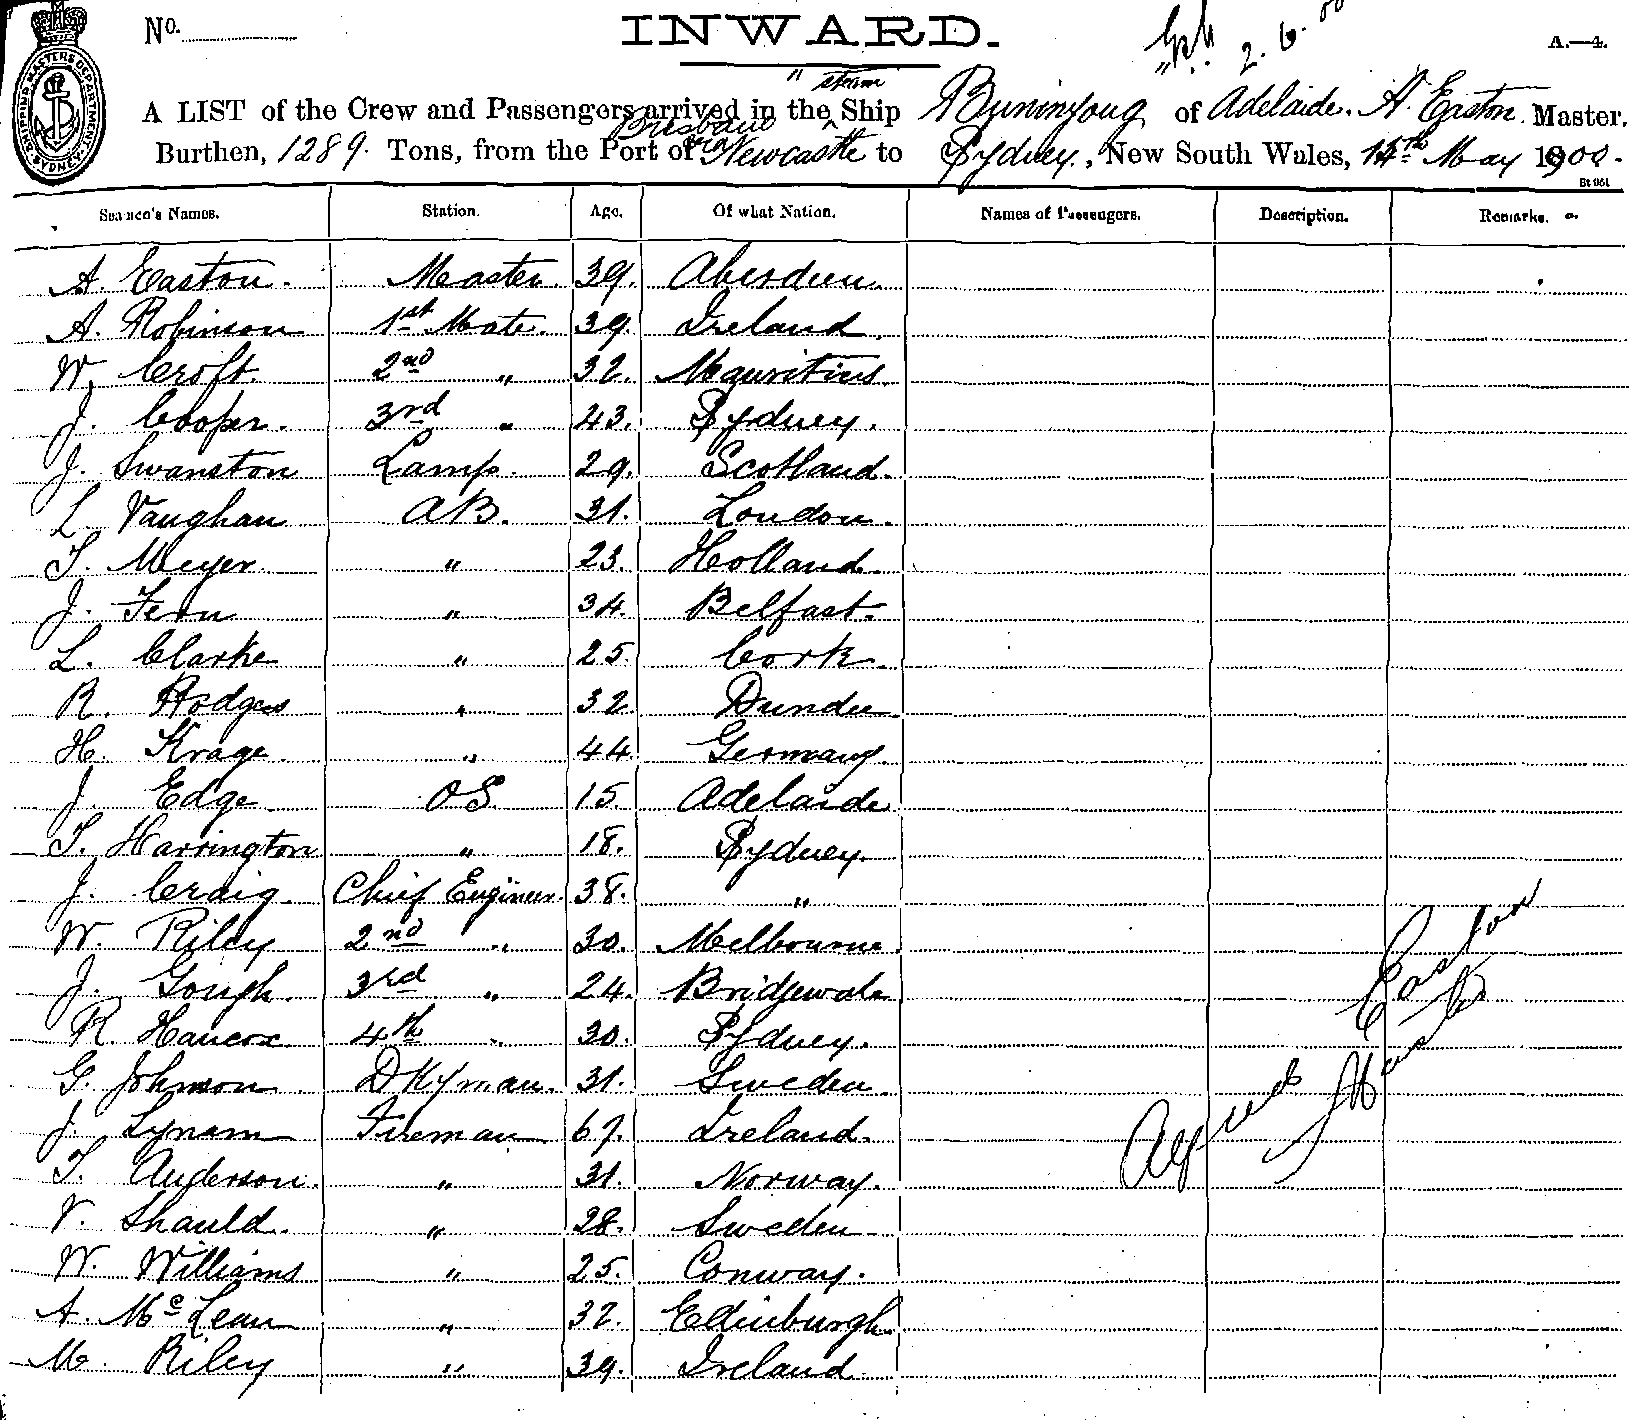 No.
INWARD.
2.6.00
A.—4.
SHIPPING MASTERS DEPARTMENT SYDNEY N.S.W.
" steam
A LIST of the Crew and Passengers arrived in the Ship Buninyong of Adelaide. A. Easton. Master,
Brisbane
Burthen, 1289. Tons, from the Port of via Newcastle to Sydney, New South Wales, 14th May 1900.
Seamen's Names. Station. Age. Of what Nation. Names of Passengers. Description. Remarks.
A. Easton. Master. 39. Aberdeen.
A. Robinson 1st Mate. 39. Ireland.
W. Croft. 2nd " 32. Mauritius.
J. Cooper. 3rd " 43. Sydney.
J. Swanston Lamp. 29. Scotland.
L. Vaughan AB. 31. London.
T. Meyer " 23. Holland.
J. Fern " 34. Belfast.
L. Clarke " 25. Cork.
R. Hodges " 32. Dundee.
H. Krage " 44. Germany.
J. Edge OS. 15. Adelaide.
T. Harrington " 18. Sydney.
J. Craig. Chief Engineer. 38. "
W. Riley 2nd " 30. Melbourne.
J. Gough. 3rd " 24. Bridgewater
R. Hancox 4th " 30. Sydney.
G. Johnson DKyman. 31. Sweden.
J. Lynam Fireman 67. Ireland.
T. Anderson. " 31. Norway.
V. Shauld. " 28. Sweden
W. Williams " 25. Conway.
A. McLean " 32. Edinburgh.
M. Riley " 39. Ireland.
Alfred Easton
Master